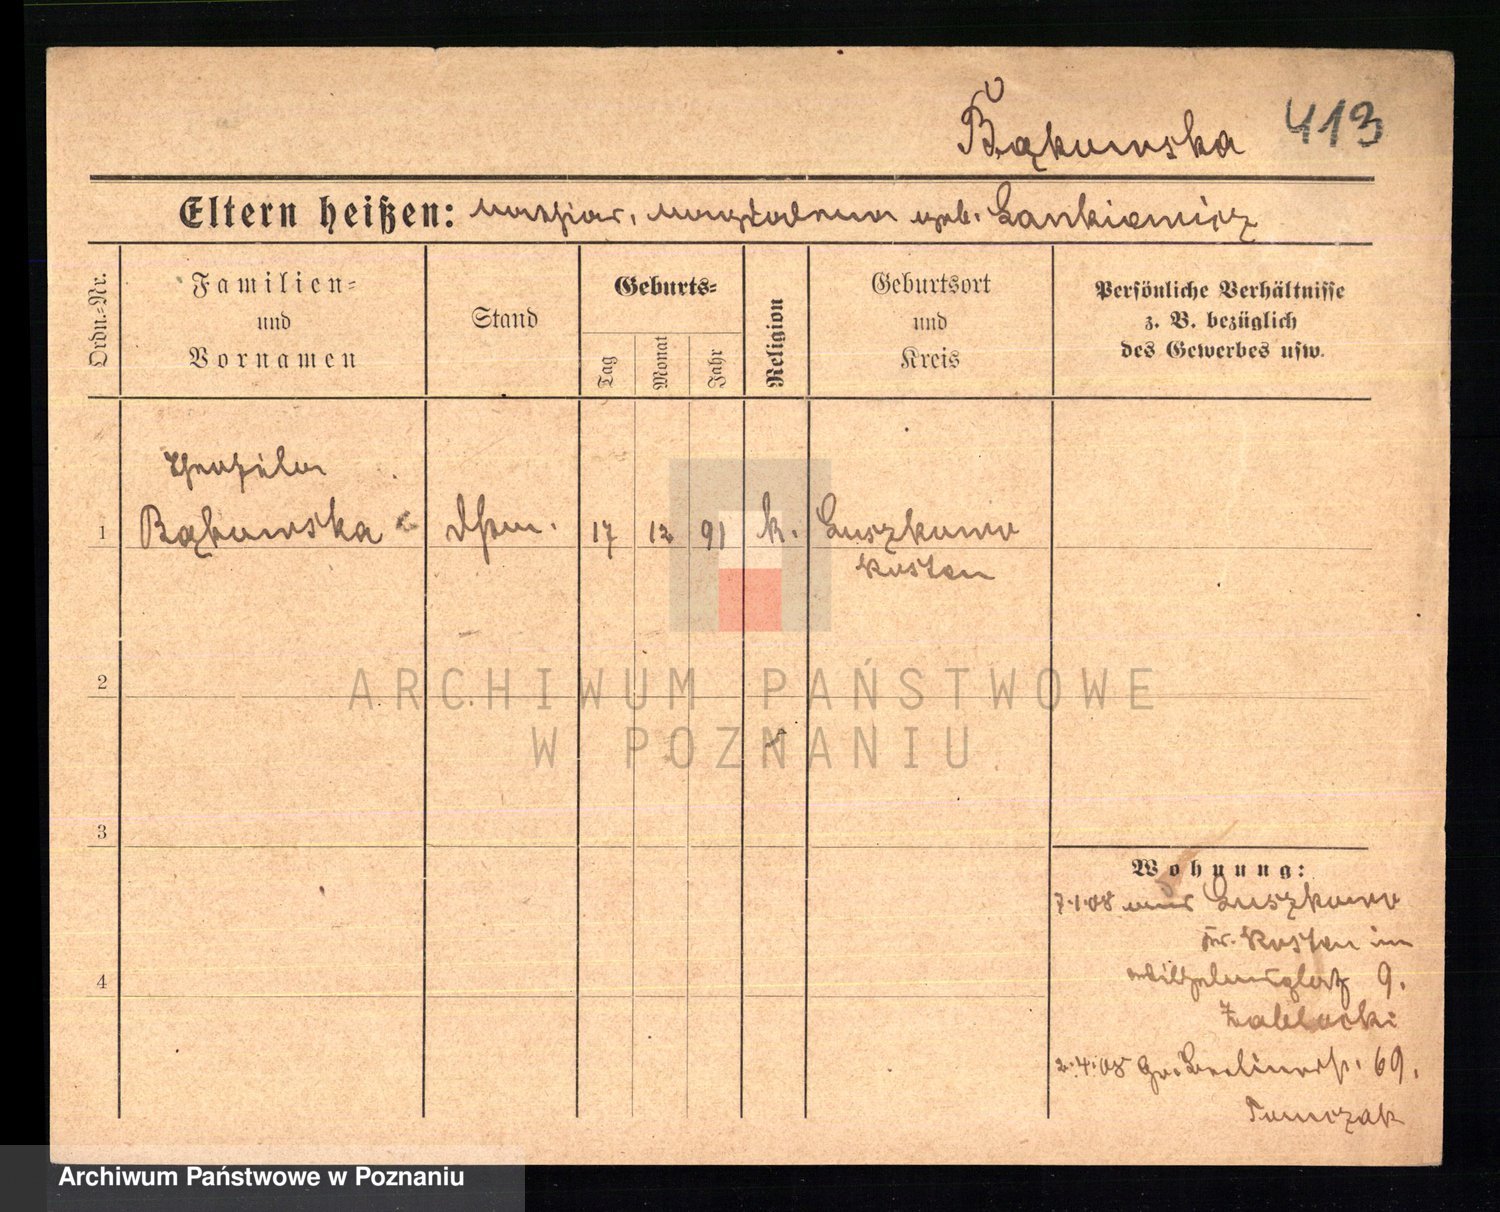 Bąkowska 413
Eltern heißen: Mathias, Magdalena geb. Lankiewicz
Ordn.-Nr.
Familien=
und
Vornamen
Stand
Geburts=
Tag
Monat
Jahr
Religion
Geburtsort
und
Kreis
Persönliche Verhältnisse
z. B. bezüglich
des Gewerbes usw.
Theophila
1 Bąkowska 17 12 91 k. Luszkowo
Kosten
2
ARCHIWUM PAŃSTWOWE
W POZNANIU
3
Wohnung:
7.1.08 aus Luszkowo
Kr. Kosten im
4
Wilhelmsplatz 9.
Zablocki
2.4.08 Gr. Berlinerst. 69.
Tomczak
Archiwum Państwowe w Poznaniu